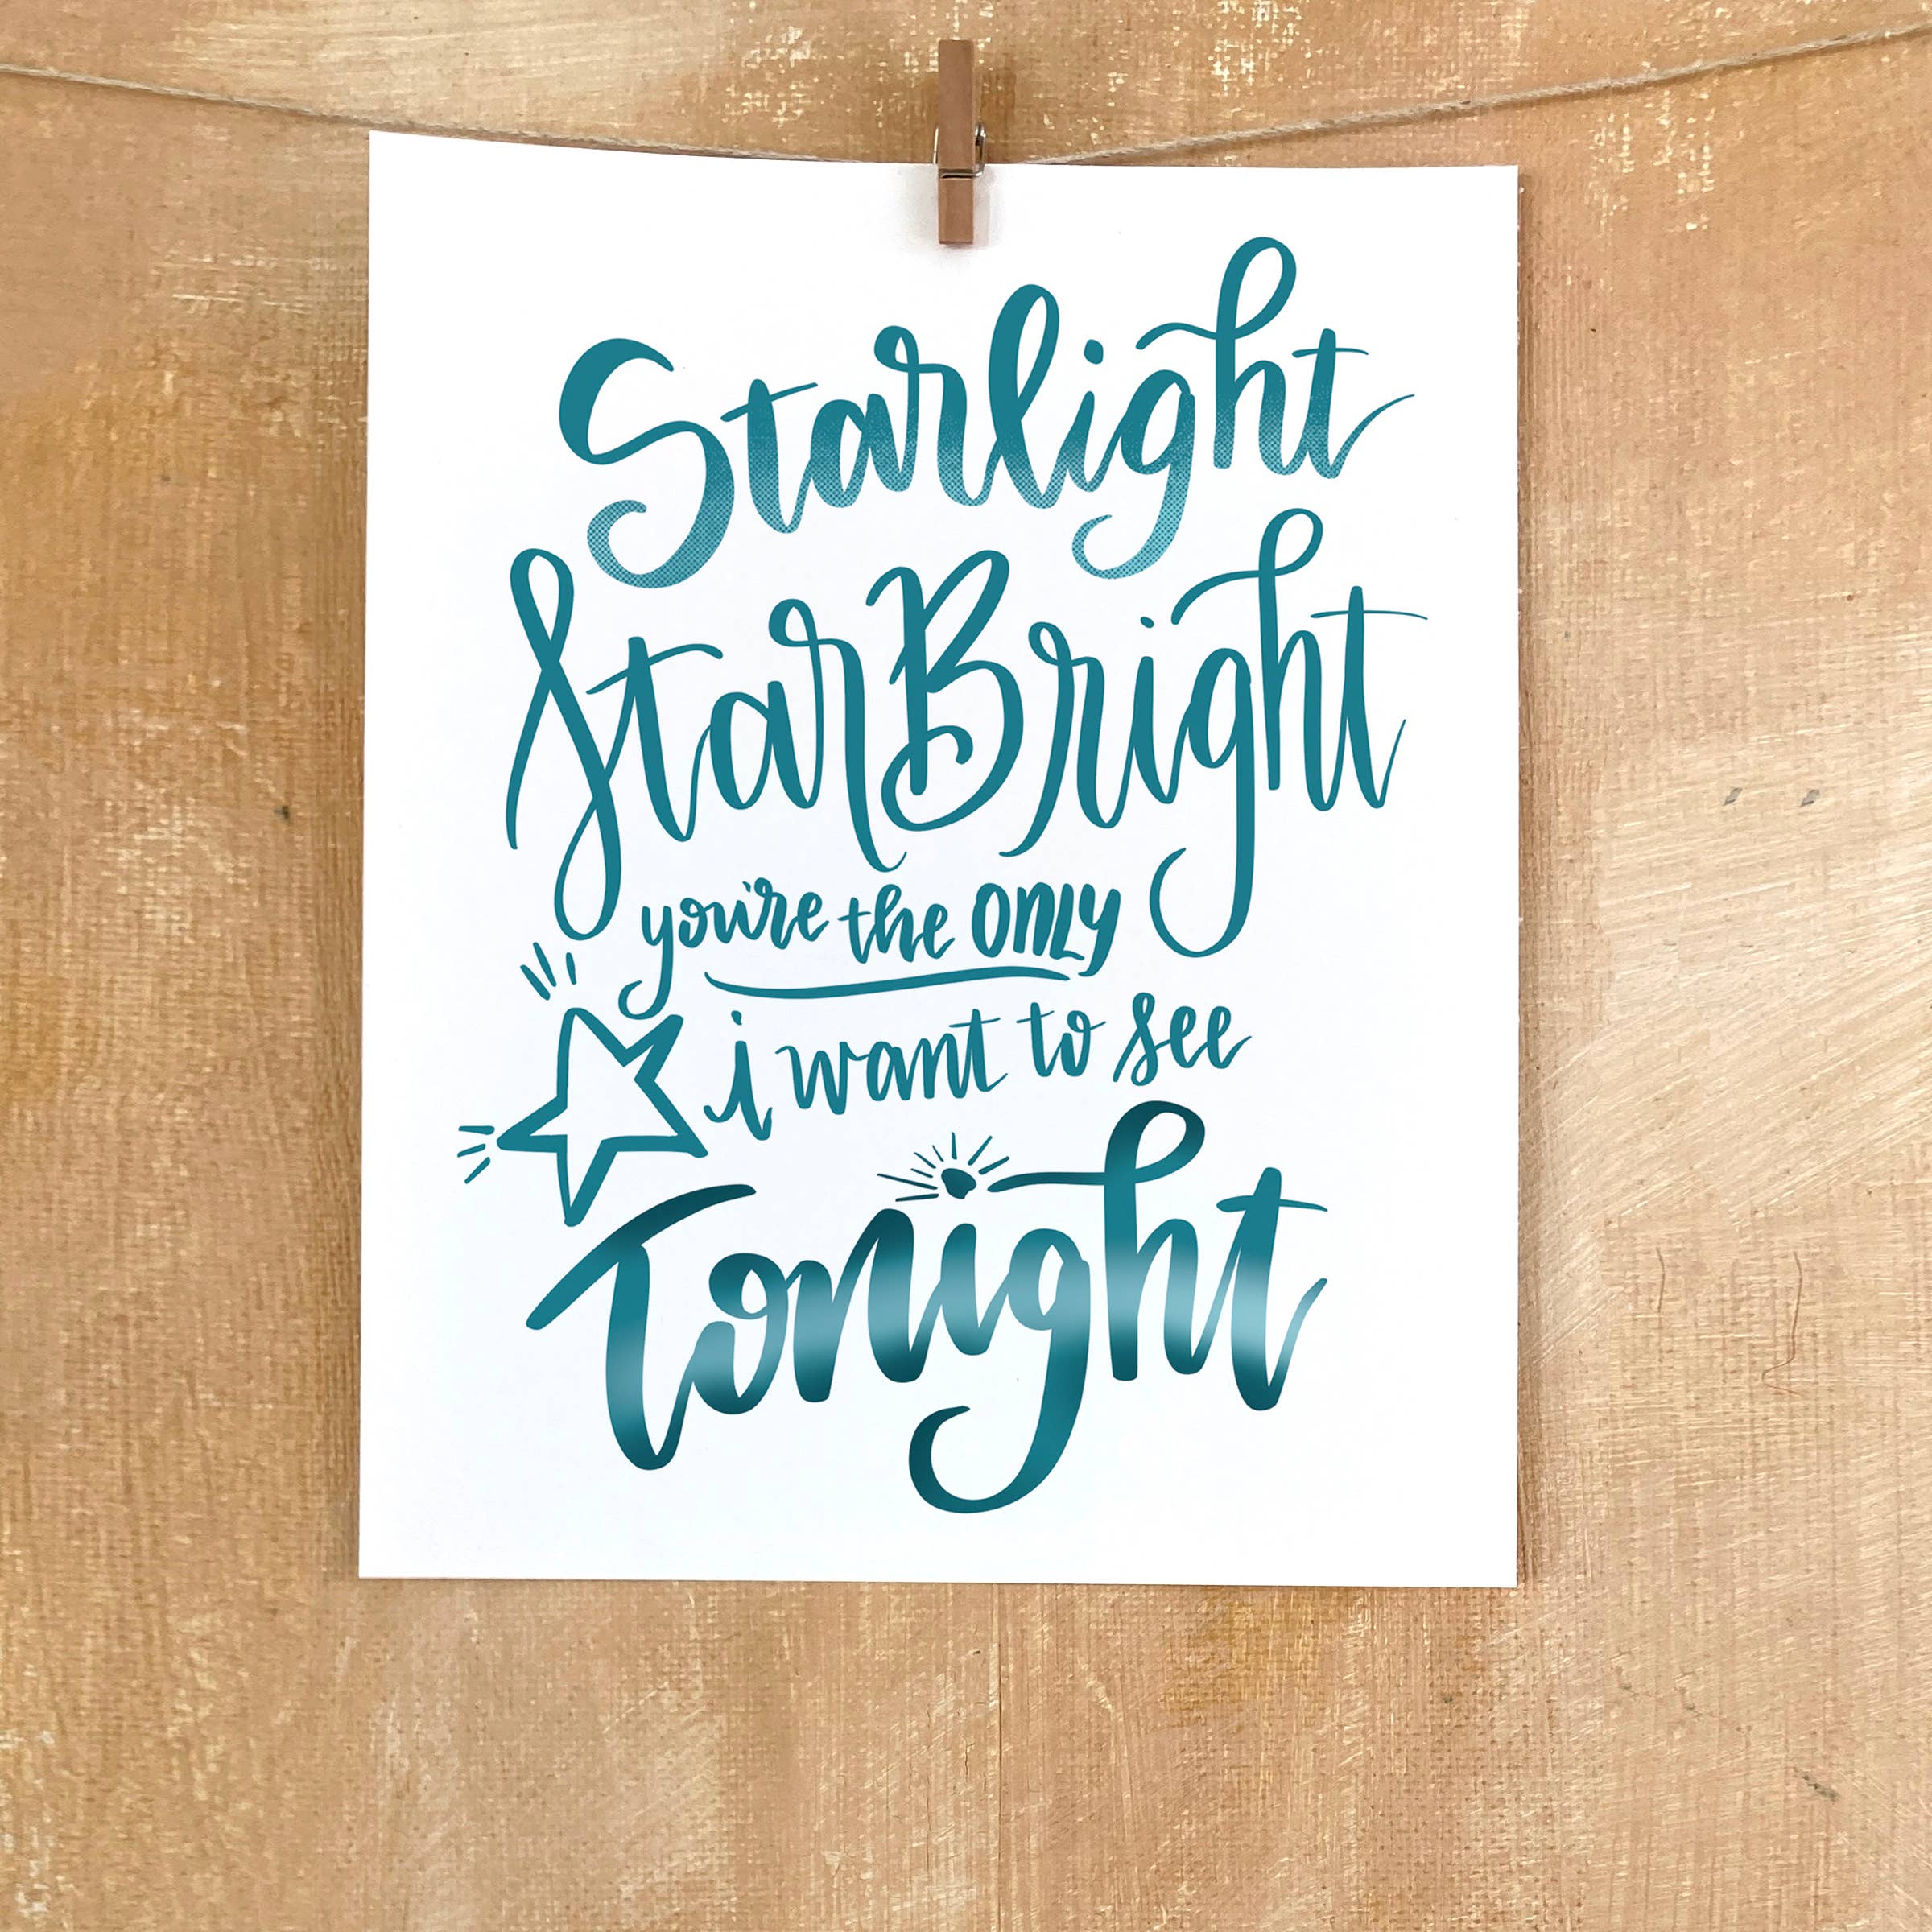 Starlight
Star Bright
you're the ONLY
i want to see
Tonight